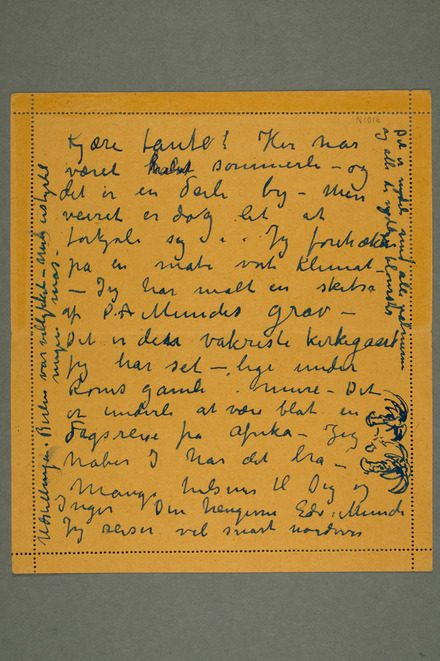 Kjære tante! Her har
været sommerli – og
det er en deili by – Men
veiret er dog let at
forkjøle sig i. Jeg foretrækker
på en måte vort klimat –
– Jeg har malt en skitse
af P. A. Munchs grav –
Det er den vakreste kirkegaard
jeg har set –, lige under
Roms gamle mure – Det
er underli at være blot en
dagsreise fra afrika – Jeg
haber I har det bra –
Mange hilsner til Dig og
Inger Din hengivne Edv. Munch
Jeg reiser vel snart nordover
Udstillingen i Berlin var vellykket –
mas –
Det er nydeli med alle palmerne
og alle de nydelige blomster
N1016